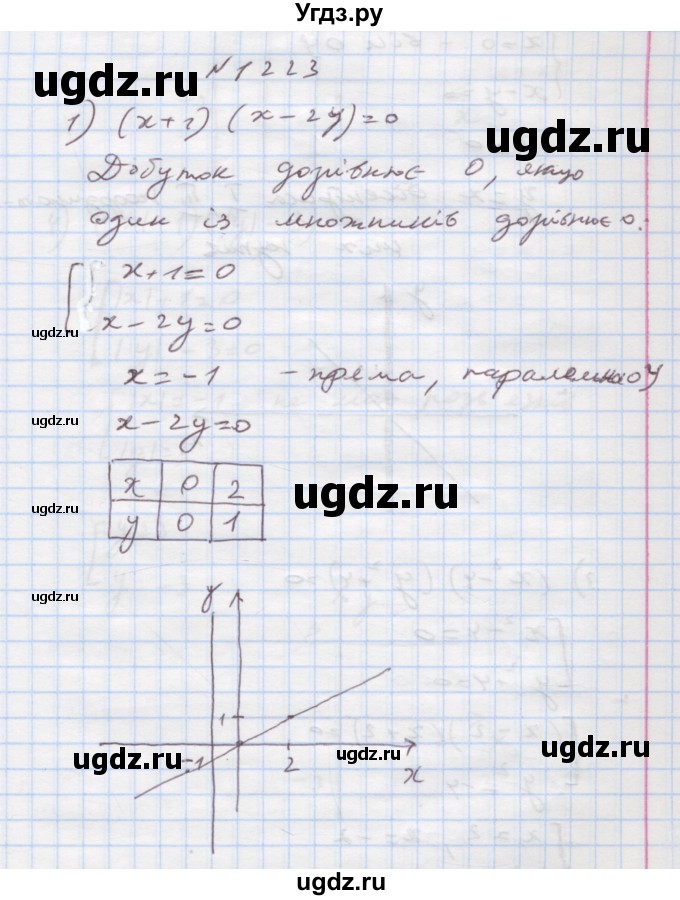 Угдз.ру
№1223
1) (x+1) (x-2y)=0
Добуток дорівнює 0, якщо
один із множників дорівнює 0.
x+1=0
x-2y=0
x=-1 - пряма, паралельна оy
x-2y=0
x 0 2
y 0 1
y
1
-1 2 x
ugdz.ru
ugdz.ru
ugdz.ru
ugdz.ru
ugdz.ru
ugdz.ru
ugdz.ru
ugdz.ru
ugdz.ru
ugdz.ru
ugdz.ru
ugdz.ru